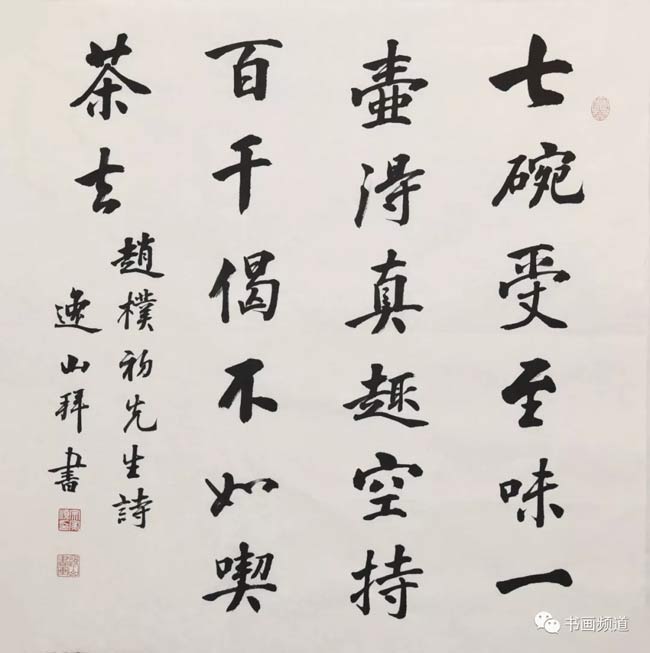 七碗受至味一
壺得真趣空持
百千偈不如喫
茶去
趙樸初先生詩
逸山拜書
书画频道